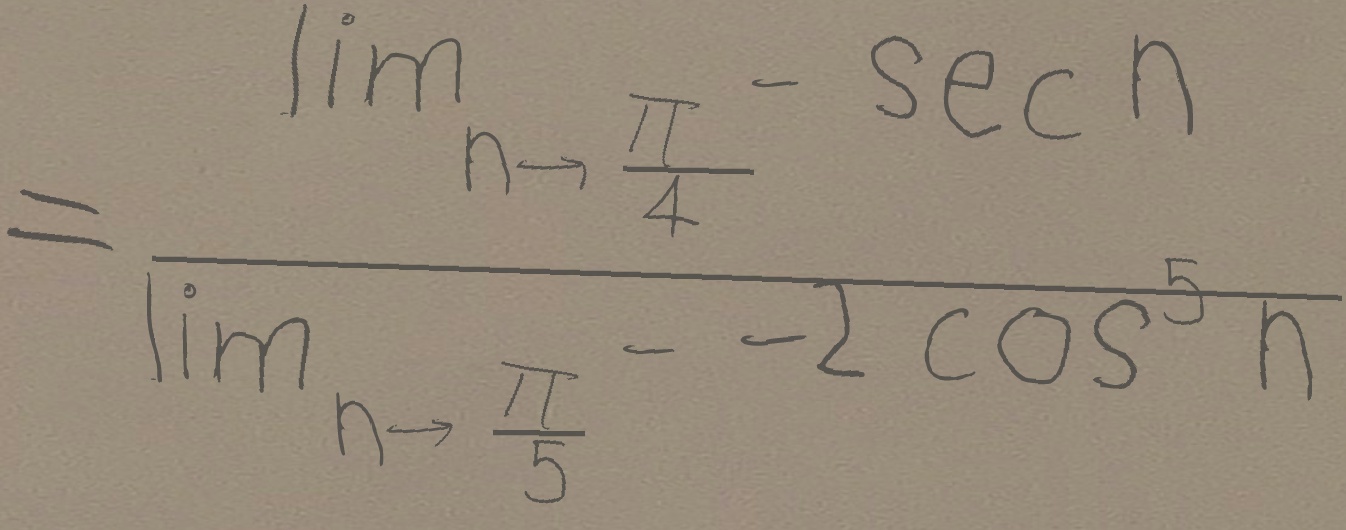 = \frac{\lim_{n \to \frac{\pi}{4}^-} \sec n}{\lim_{n \to \frac{\pi}{5}^-} -2 \cos^5 n}